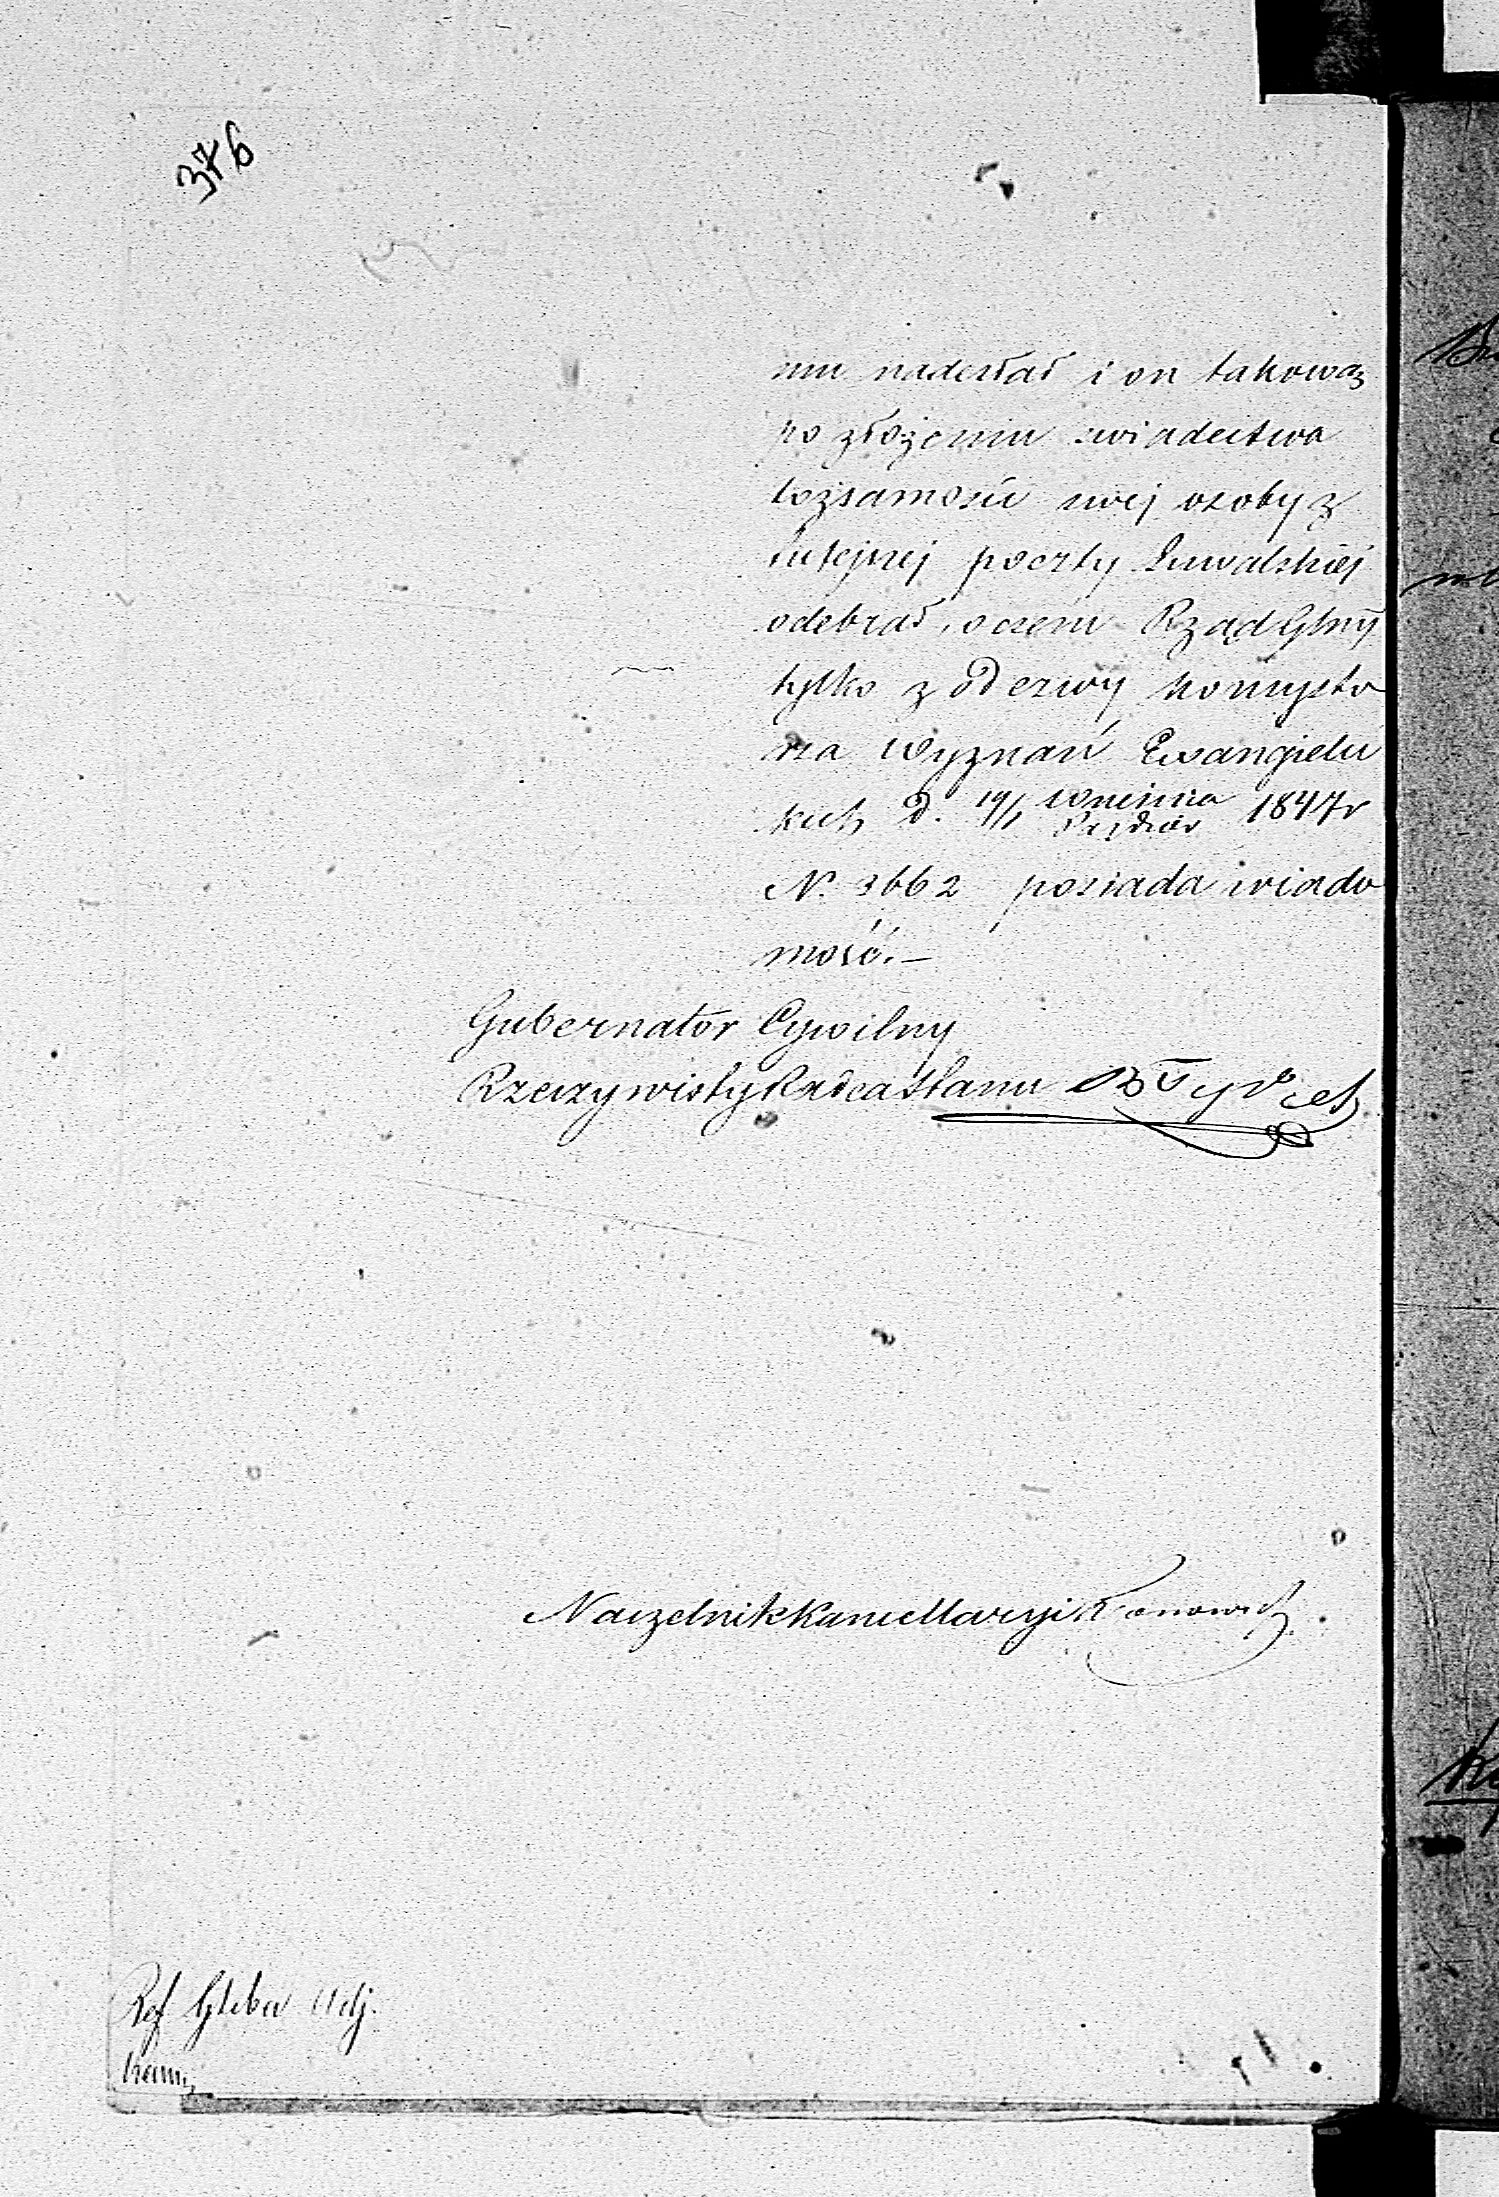 376
mu nadesłał i on takową
po złożeniu swiadectwa
tożsamości swej osoby z
tutejszej poczty Suwalskiej
odebrał, o czem Rząd Gbny
tylko z odezwy Konsysto
rza Wyznań Ewangielic
kich d. 19/1 Września Paździer 1847 r
N. 3662 posiada wiado
mość.—
Gubernator Cywilny
Rzeczywisty Radca Stanu
Naczelnik Kancellaryi
Ref Gleba Adj.